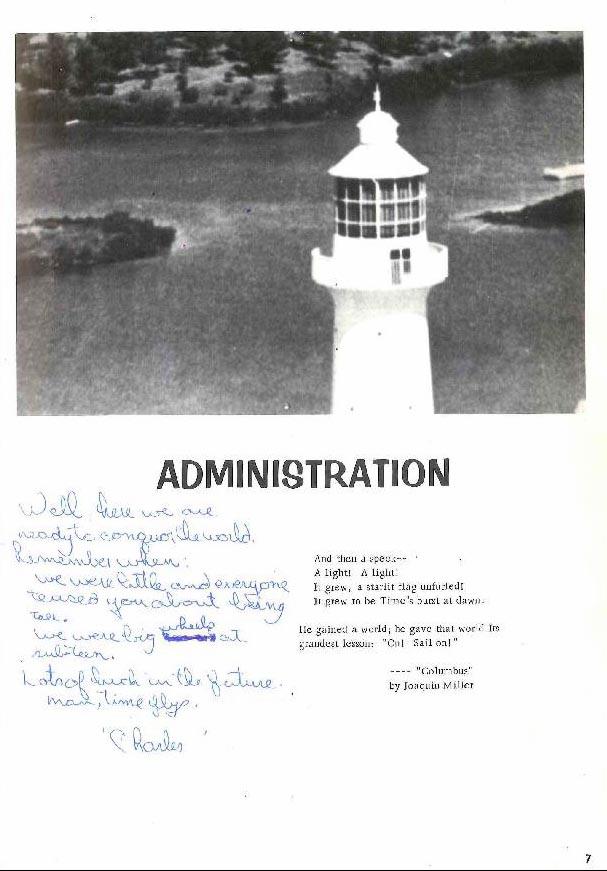 ADMINISTRATION
Well here we are
ready to conquor the world.
Remember when:
we were little and everyone
teased you about being
tall.
we were big wheels at
sub-teen.
Lots of luck in the future.
man, time flys.
'Charles'
And then a speck--
A light! A light!
It grew, a starlit flag unfurled!
It grew to be Time's burst at dawn.
He gained a world; he gave that world Its
grandest lesson: "On! Sail on!"
---- "Columbus"
by Joaquin Miller
7